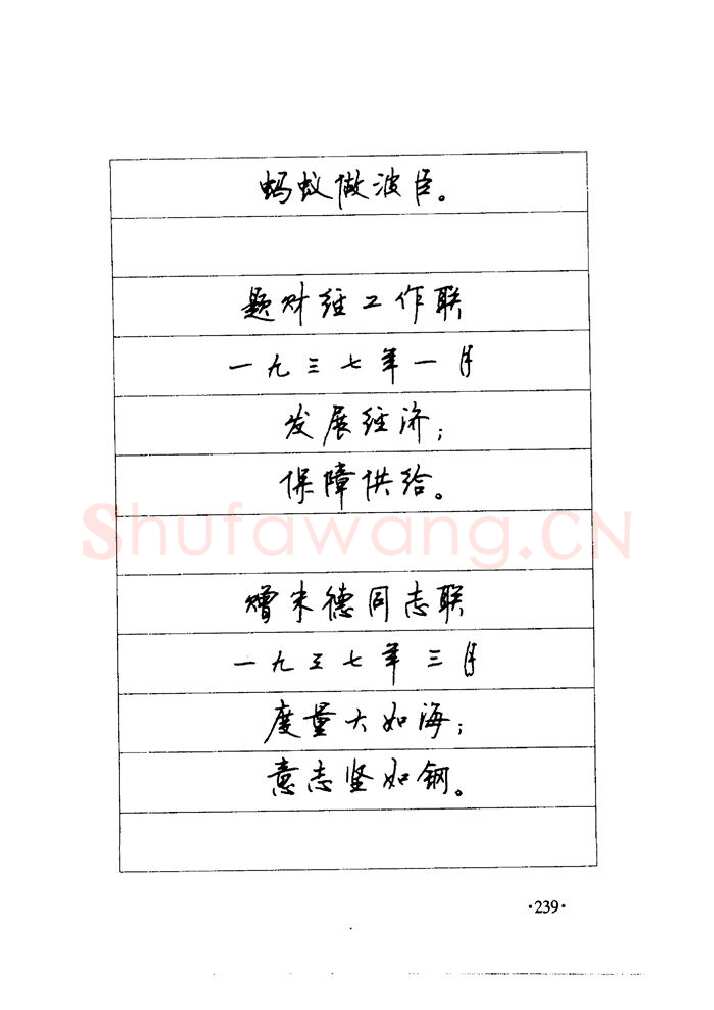 蚂蚁做波臣。
题财经工作联
一九三七年一月
发展经济；
保障供给。
Shufawang.CN
赠朱德同志联
一九三七年三月
度量大如海；
意志坚如钢。
·239·